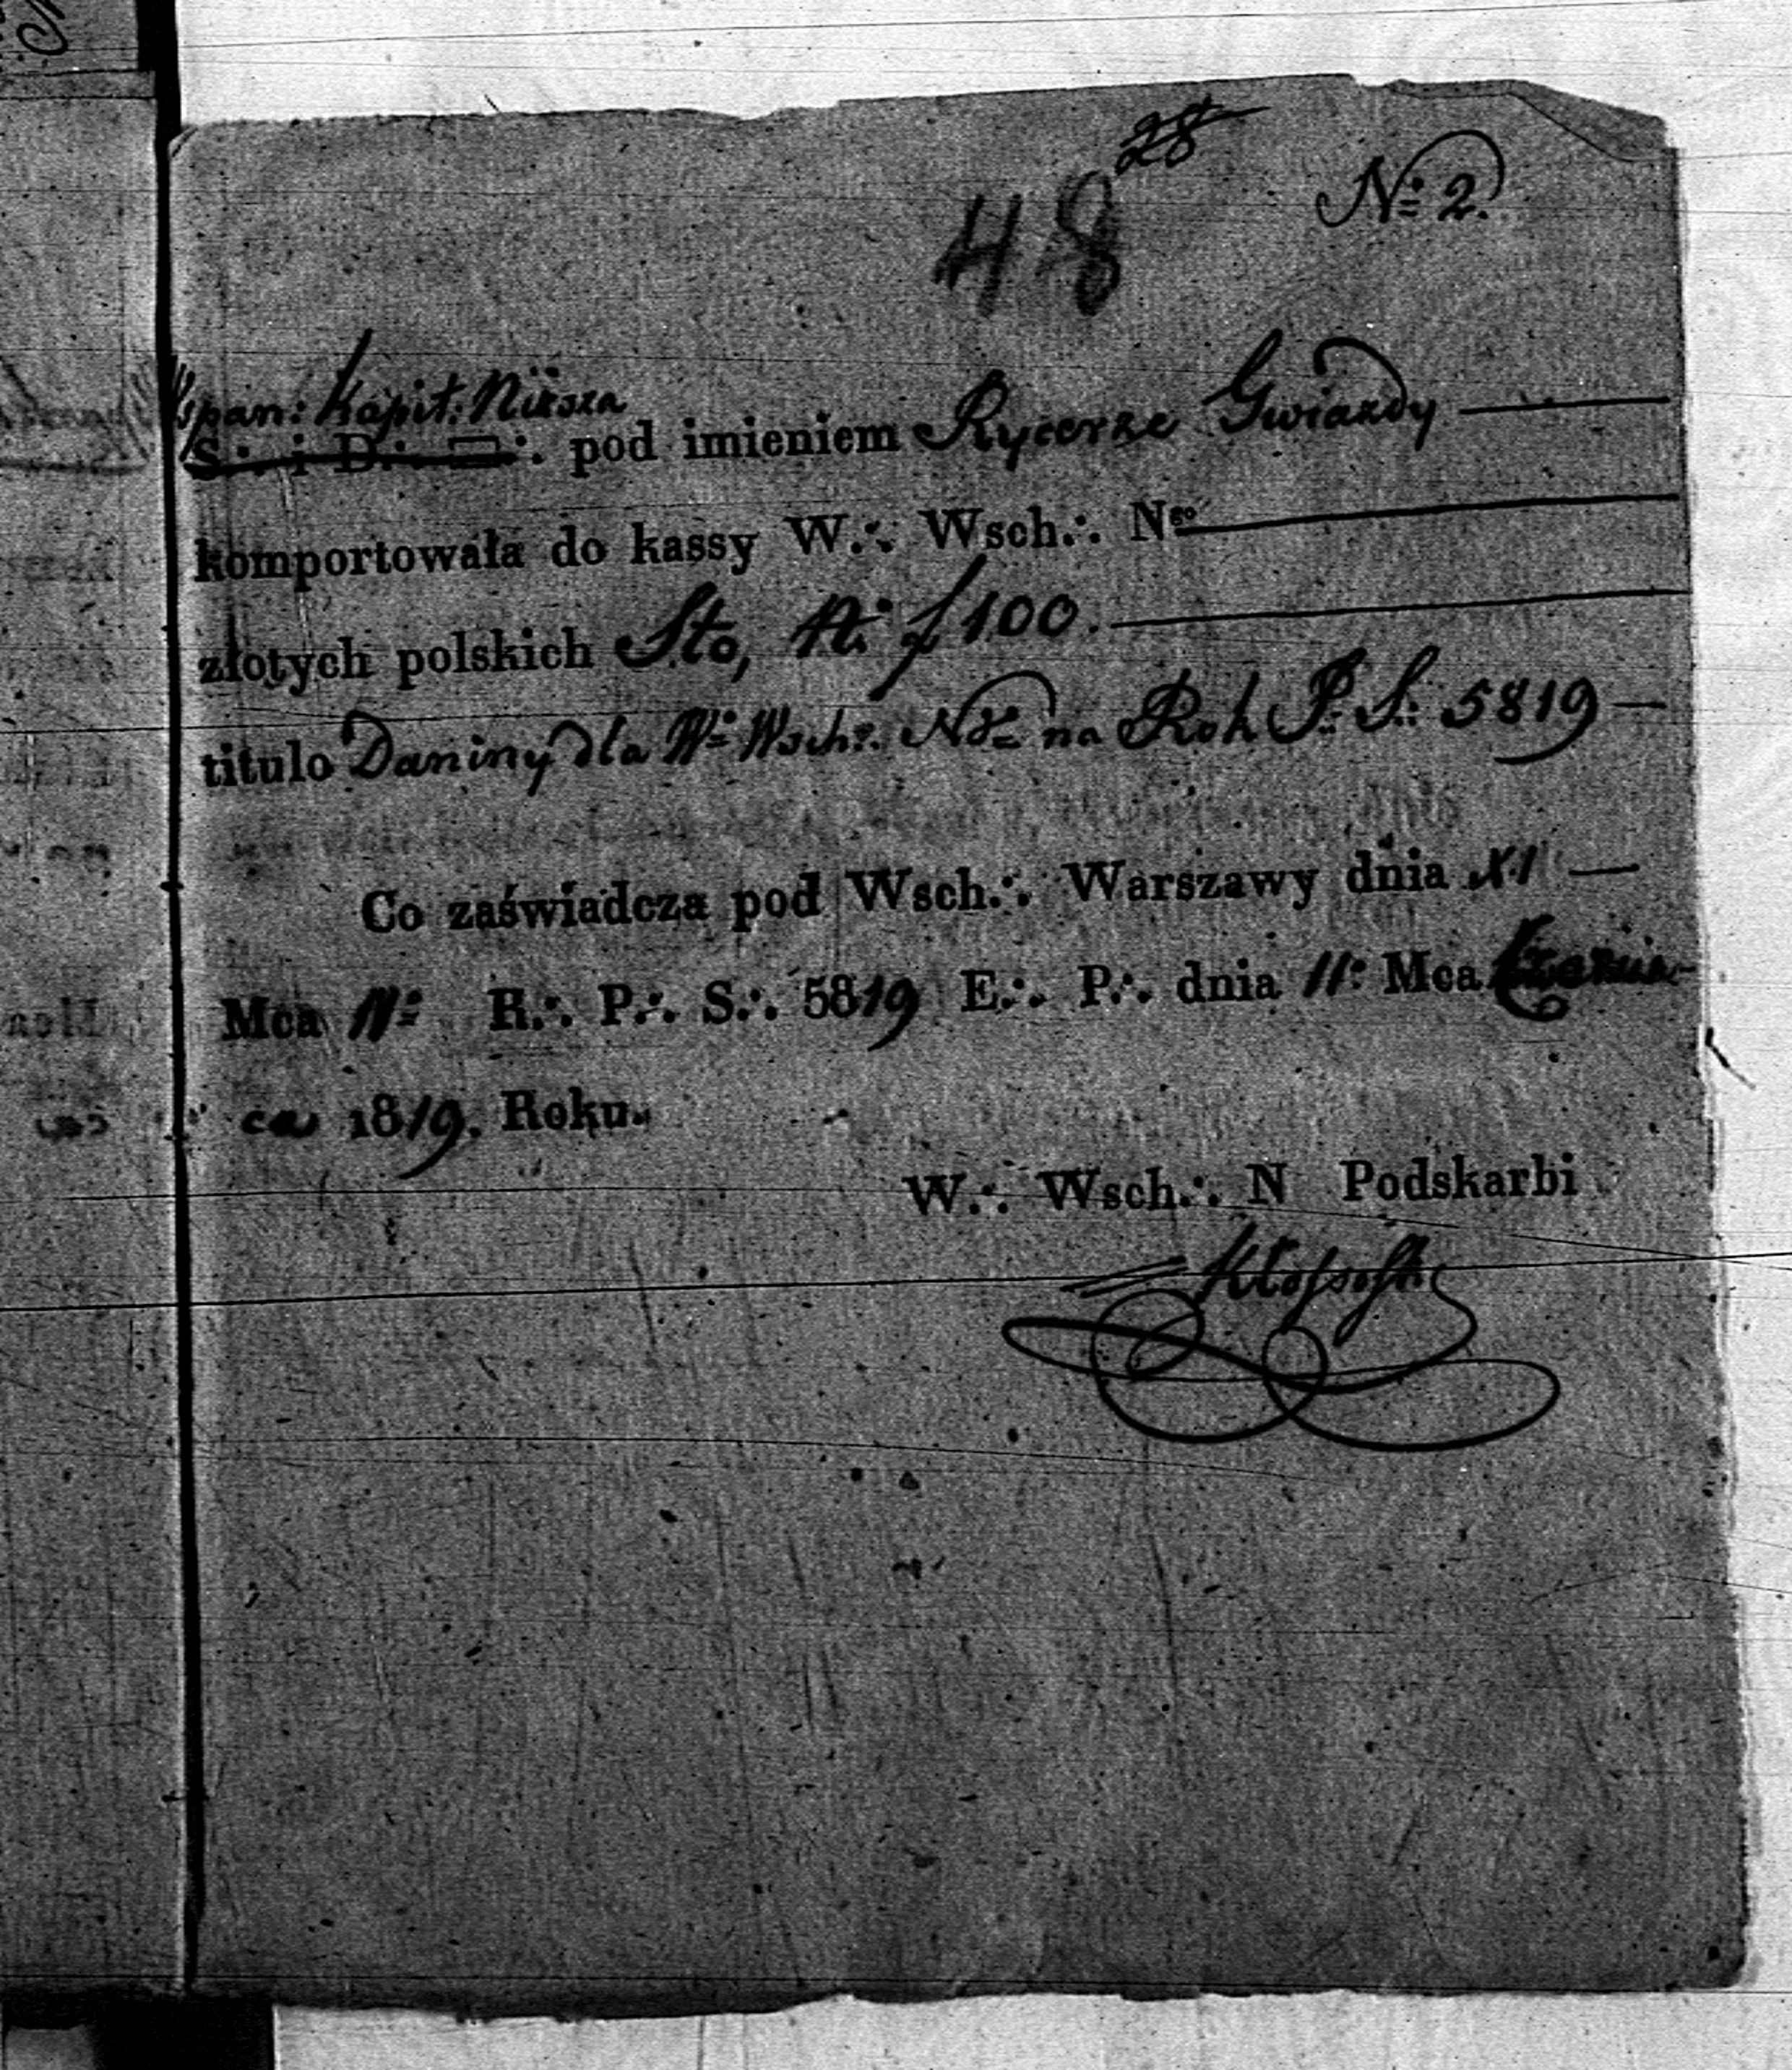 28
48
N: 2.
Wspan: Kapit: Niższa
S∴ i D∴ □∴ pod imieniem Rycerze Gwiazdy
komportowała do kassy W∴ Wsch∴ N
złotych polskich Sto, f 100.
titulo Daniny dla W: Wsch: na Rok P: S: 5819
Co zaświadcza pod Wsch∴ Warszawy dnia XI
Mca R∴ P∴ S∴ 5819 E∴ P∴ dnia 11: Mca Czerw-
ca 1819. Roku.
W∴ Wsch∴ N Podskarbi